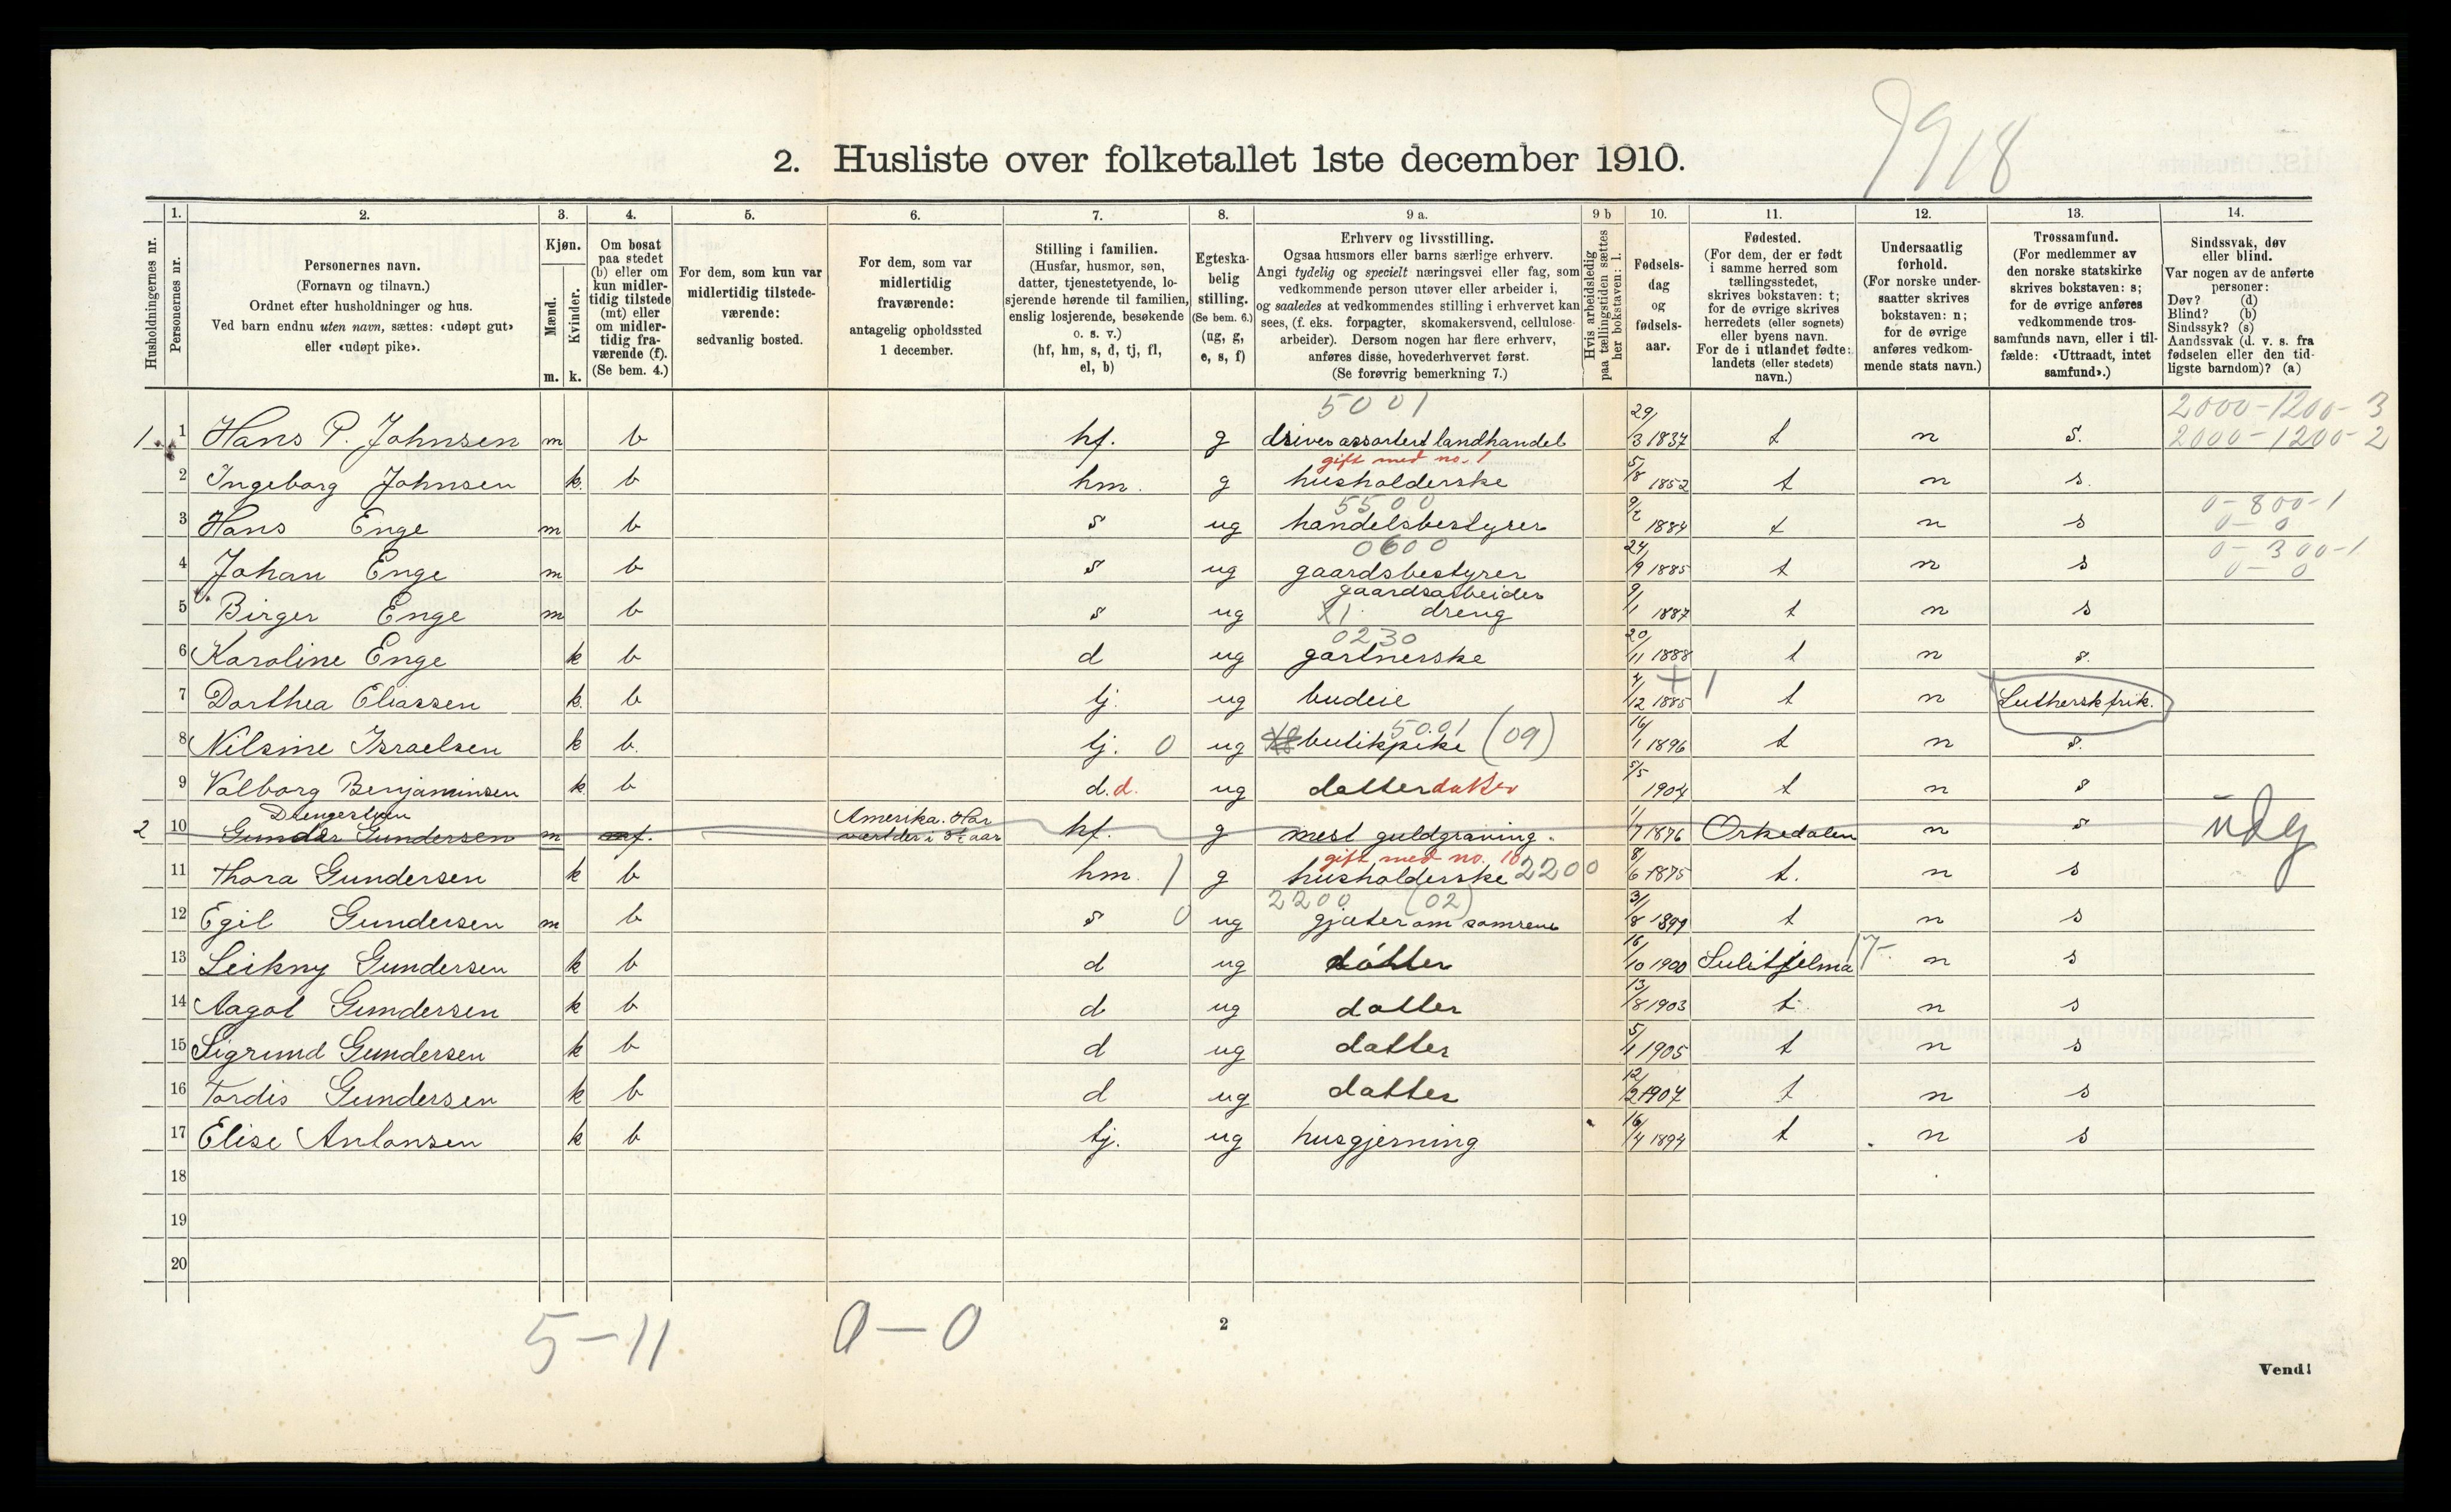 9918
2. Husliste over folketallet 1ste december 1910.
1. 2. 3. 4. 5. 6. 7. 8. 9 a. 9 b 10. 11. 12. 13. 14.
Husholdningernes nr.
Personernes nr.
Personernes navn.
(Fornavn og tilnavn.)
Ordnet efter husholdninger og hus.
Ved barn endnu uten navn, sættes: «udøpt gut»
eller «udøpt pike».
Kjøn.
Mænd.
Kvinder.
m. k.
Om bosat
paa stedet
(b) eller om
kun midler-
tidig tilstede
(mt) eller
om midler-
tidig fra-
værende (f).
(Se bem. 4.)
For dem, som kun var
midlertidig tilstede-
værende:
sedvanlig bosted.
For dem, som var
midlertidig
fraværende:
antagelig opholdssted
1 december.
Stilling i familien.
(Husfar, husmor, søn,
datter, tjenestetyende, lo-
sjerende hørende til familien,
enslig losjerende, besøkende
o. s. v.)
(hf, hm, s, d, tj, fl,
el, b)
Egteska-
belig
stilling.
(Se bem. 6.)
(ug, g,
e, s, f)
Erhverv og livsstilling.
Ogsaa husmors eller barns særlige erhverv.
Angi tydelig og specielt næringsvei eller fag, som
vedkommende person utøver eller arbeider i,
og saaledes at vedkommendes stilling i erhvervet kan
sees, (f. eks. forpagter, skomakersvend, cellulose-
arbeider). Dersom nogen har flere erhverv,
anføres disse, hovederhvervet først.
(Se forøvrig bemerkning 7.)
Hvis arbeidsledig
paa tællingstiden sættes
her bokstaven: l.
Fødsels-
dag
og
fødsels-
aar.
Fødested.
(For dem, der er født
i samme herred som
tællingsstedet,
skrives bokstaven: t;
for de øvrige skrives
herredets (eller sognets)
eller byens navn.
For de i utlandet fødte:
landets (eller stedets)
navn.)
Undersaatlig
forhold.
(For norske under-
saatter skrives
bokstaven: n;
for de øvrige
anføres vedkom-
mende stats navn.)
Trossamfund.
(For medlemmer av
den norske statskirke
skrives bokstaven: s;
for de øvrige anføres
vedkommende tros-
samfunds navn, eller i til-
fælde: «Uttraadt, intet
samfund».)
Sindssvak, døv
eller blind.
Var nogen av de anførte
personer:
Døv? (d)
Blind? (b)
Sindssyk? (s)
Aandssvak (d. v. s. fra
fødselen eller den tid-
ligste barndom)? (a)
5001 2000-1200-3
1. 1 Hans P. Johnsen m b hf. g driver assortert landhandel 29/3 1837 t n s. 2000-1200-2
gift med no. 1
2 Ingeborg Johnsen k. b hm. g husholderske 5/8 1852 t n s.
5500 0-800-1
3 Hans Enge m b s ug handelsbestyrer 9/2 1884 t n s 0-0
0600 0-300-1
4 Johan Enge m b s ug gaardsbestyrer 24/9 1885 t n s 0-0
gaardsarbeider
5 Birger Enge m b s ug X1. dreng 9/1 1887 t n s
0230
6 Karoline Enge k b d ug gartnerske 20/11 1888 t n s.
7 Dorthea Eliassen k. b tj. ug budeie 4/12 1885 + 1 t n Luthersk frik.
5001
8 Nilsine Israelsen k b. tj. 0 ug butikpike (09) 16/1 1896 t n s.
9 Valborg Benjaminsen k b d.d. ug datterdatter 5/5 1904 t n s
Drengestuen Amerika. Har
2 10 Gunder Gundersen m f. været der i 4 1/2 aar hf. g mest guldgraving. 1/7 1876 Orkedalen n s udg
gift med no. 10
11 Thora Gundersen k b hm. 1 g husholderske 2200 8/6 1875 t. n s
2200 (02)
12 Egil Gundersen m b s 0 ug gjæter om somrene 3/8 1899 t n s
13 Leikny Gundersen k b d ug datter 16/10 1900 Sulitjelma 17- n s
14 Aagot Gundersen k b d ug datter 13/8 1903 t. n s
15 Sigrund Gundersen k b d ug datter 5/1 1905 t n s
16 Tordis Gundersen k b d ug datter 12/2 1907 t n s
17 Elise Antonsen k b tj. ug husgjerning 16/4 1894 t n s
18
19
20
5-11 0-0 2
Vend!